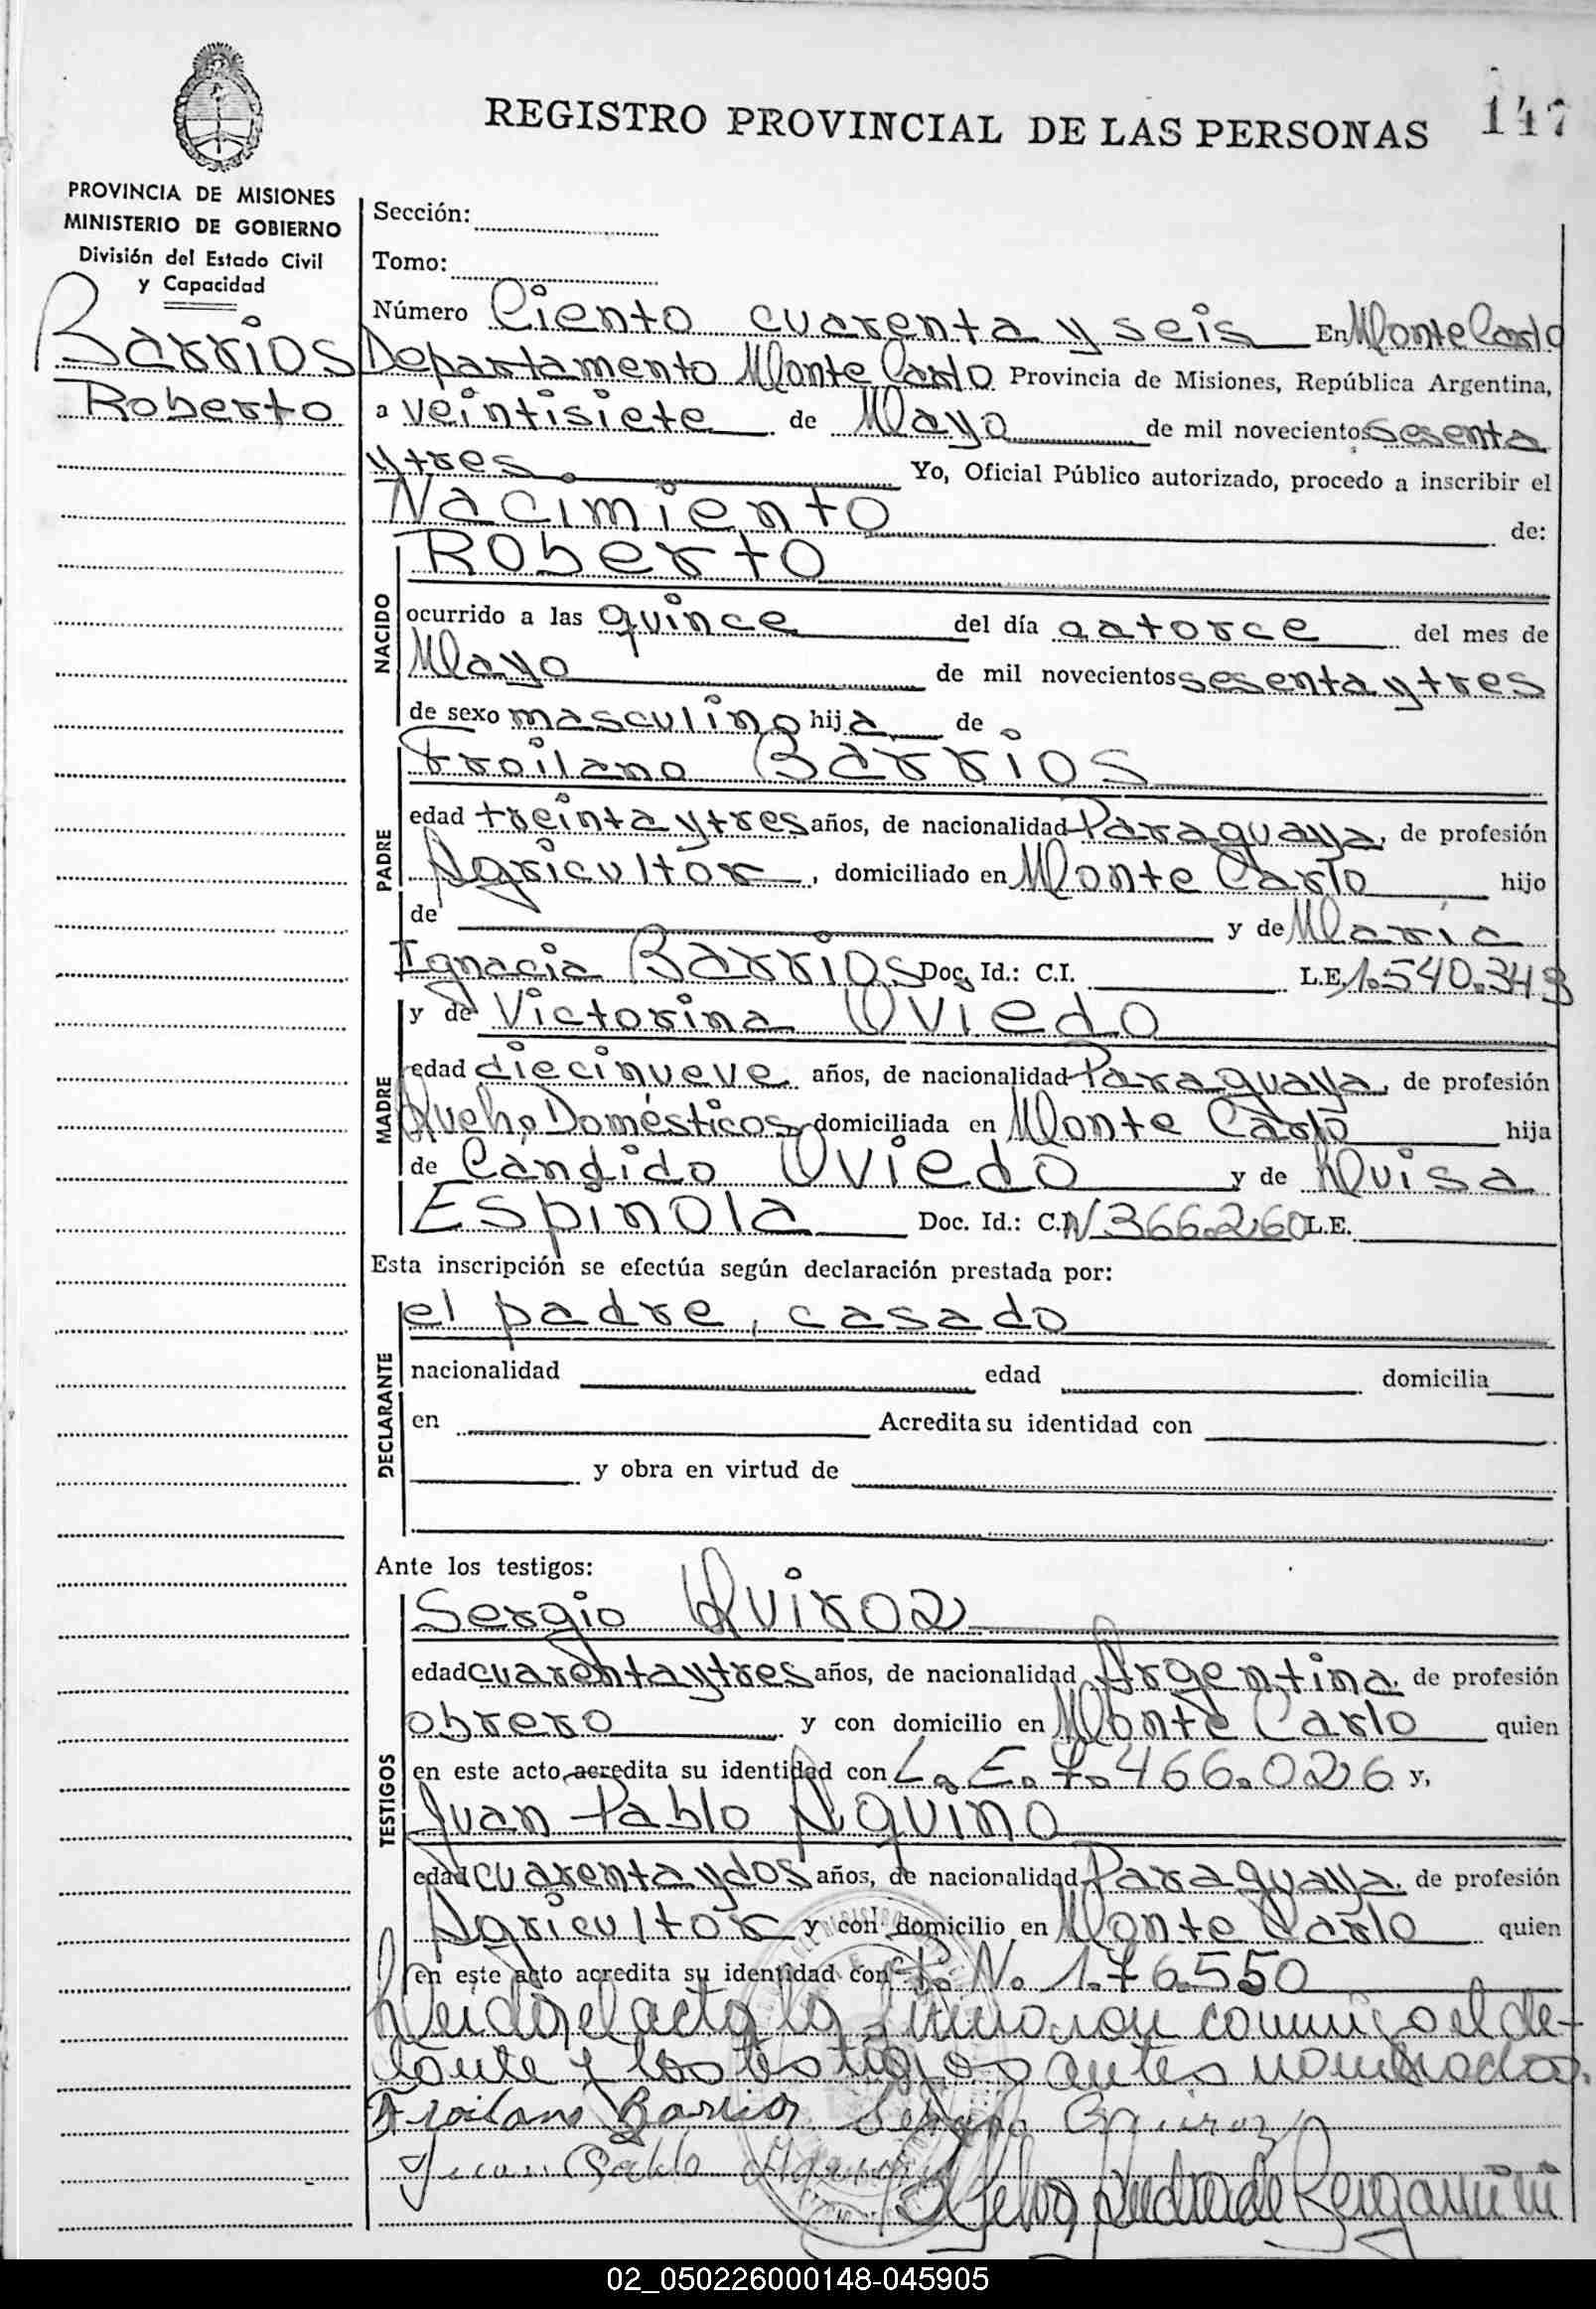 REGISTRO PROVINCIAL DE LAS PERSONAS 147
PROVINCIA DE MISIONES
MINISTERIO DE GOBIERNO
División del Estado Civil
y Capacidad
Barrios
Roberto
Sección:
Tomo:
Número Ciento cuarenta y seis En Monte Carlo
Departamento Monte Carlo Provincia de Misiones, República Argentina,
a veintisiete de Mayo de mil novecientos sesenta
y tres. Yo, Oficial Público autorizado, procedo a inscribir el
Nacimiento de:
NACIDO
Roberto
ocurrido a las quince del día catorce del mes de
Mayo de mil novecientos sesenta y tres
de sexo masculino hija de
PADRE
Froilano Barrios
edad treinta y tres años, de nacionalidad Paraguaya, de profesión
Agricultor, domiciliado en Monte Carlo hijo
de y de María
Ignacia Barrios Doc. Id.: C.I. L.E. 1.540.343
MADRE
y de Victorina Oviedo
edad diecinueve años, de nacionalidad Paraguaya, de profesión
Queh. Domésticos domiciliada en Monte Carlo hija
de Candido Oviedo y de Luisa
Espinola Doc. Id.: C.I. N 366.260 L.E.
Esta inscripción se efectúa según declaración prestada por:
DECLARANTE
el padre, casado
nacionalidad edad domicilia
en Acredita su identidad con
y obra en virtud de
Ante los testigos:
TESTIGOS
Sergio Quiroz
edad cuarenta y tres años, de nacionalidad Argentina, de profesión
obrero y con domicilio en Monte Carlo quien
en este acto acredita su identidad con L. E. 7.466.026 y,
Juan Pablo Aquino
edad cuarenta y dos años, de nacionalidad Paraguaya, de profesión
Agricultor y con domicilio en Monte Carlo quien
en este acto acredita su identidad con P. N. 176.550
Leido el acta la firmaron conmigo el de-
clarante y los testigos antes nombrados.
Froilano Barrios Sergio Quiroz
Juan Pablo Aquino
de Bergamini
02_050226000148-045905